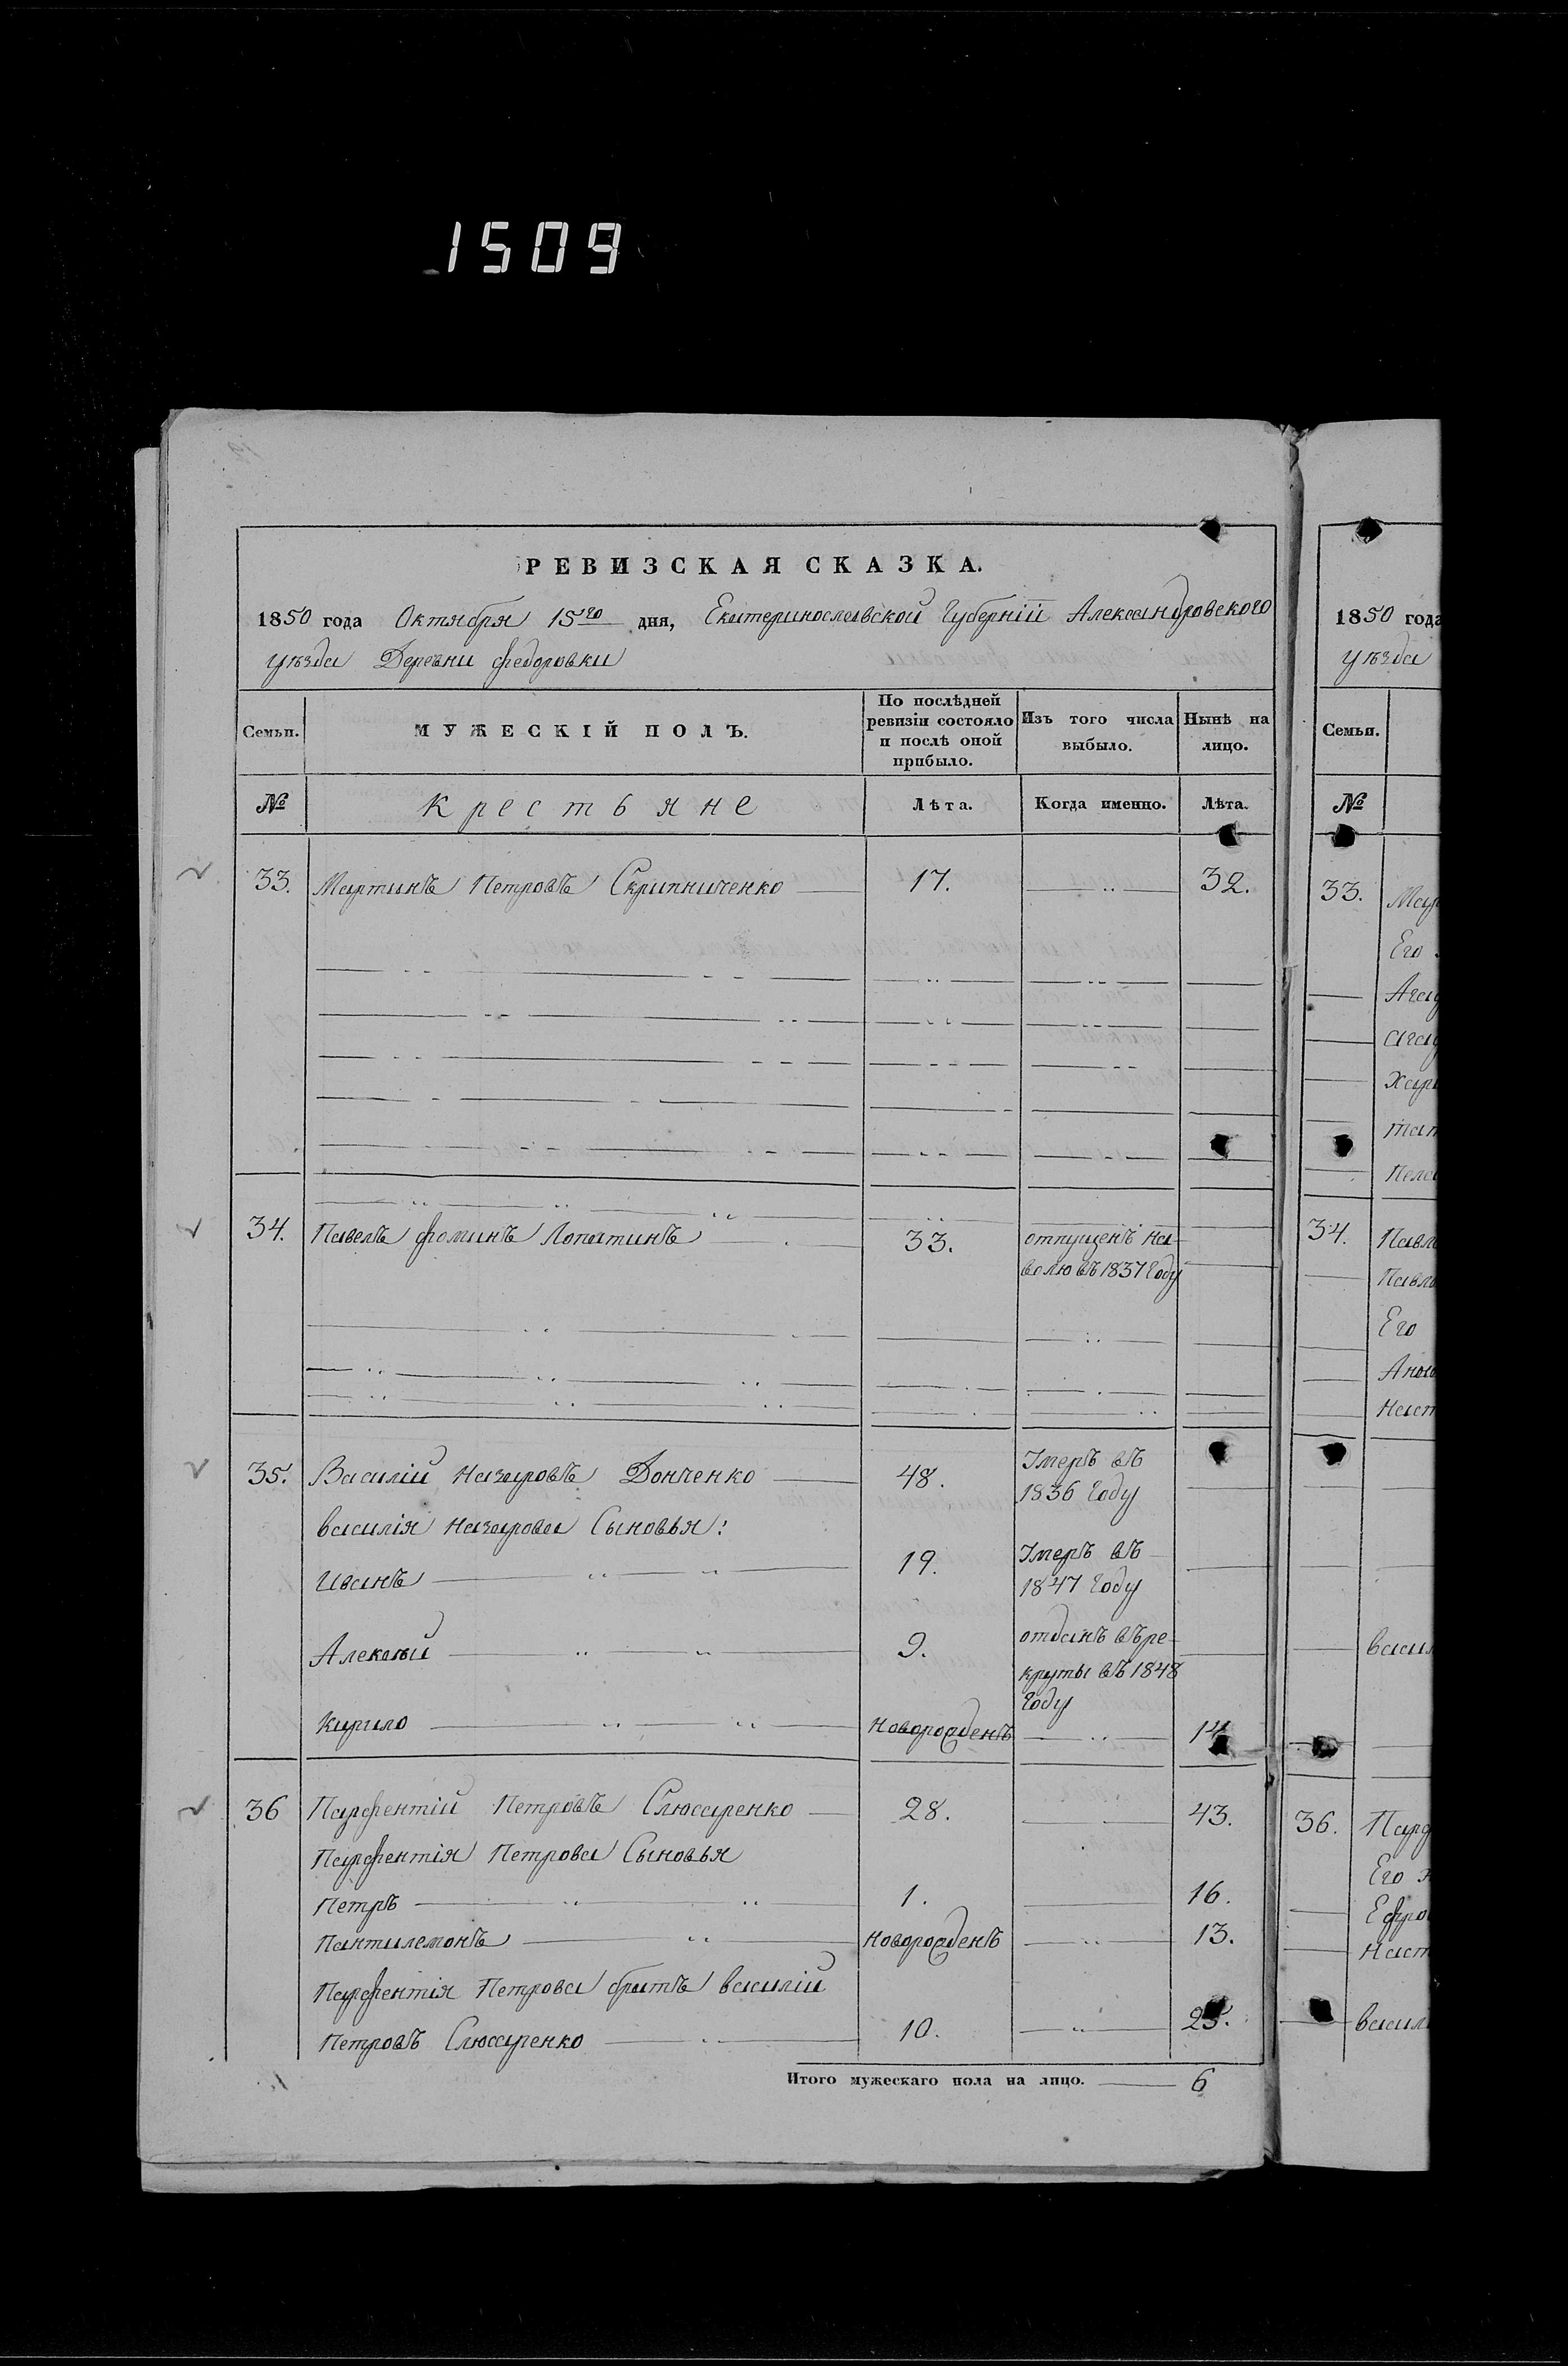 1509
РЕВИЗСКАЯ СКАЗКА.
1850 года Октября 15го дня, Екатеринославской Губерніи Александровского
уѣзда Деревни Федоровки
Семьи.
МУЖЕСКІЙ ПОЛЪ.
По послѣдней ревизіи состояло и послѣ оной прибыло.
Изъ того числа выбыло.
Нынѣ на лицо.
№ Крестьяне Лѣта. Когда именно. Лѣта.
33. Мартинъ Петровъ Скрипниченко 17. 32.
34. Павелъ Фоминъ Лопатинъ 33. отпущенъ на
волю въ 1837 Году
35. Василій Назаровъ Донченко 48. Умеръ въ
1836 Году
Василія Назарова Сыновья:
Иванъ 19. Умеръ въ
1847 Году
Алексѣй 9. отданъ въ ре-
круты въ 1848
Году
Кирило Новорожденъ 14
36 Парфентій Петровъ Слюсаренко 28. 43.
Парфентія Петрова Сыновья
Петръ 1. 16.
Пантилемонъ Новорожденъ 13.
Парфентія Петрова братъ Василій
Петровъ Слюсаренко 10. 25.
Итого мужескаго пола на лицо. 6
1850 года
уѣзда
Семьи.
№
33. Мар
Его
Агаф
Агаф
Хари
Тат
Пела
34. Павл
Павл
Его
Анас
Наст
Васил
36. Парф
Его ж
Ефро
Наст
Васил